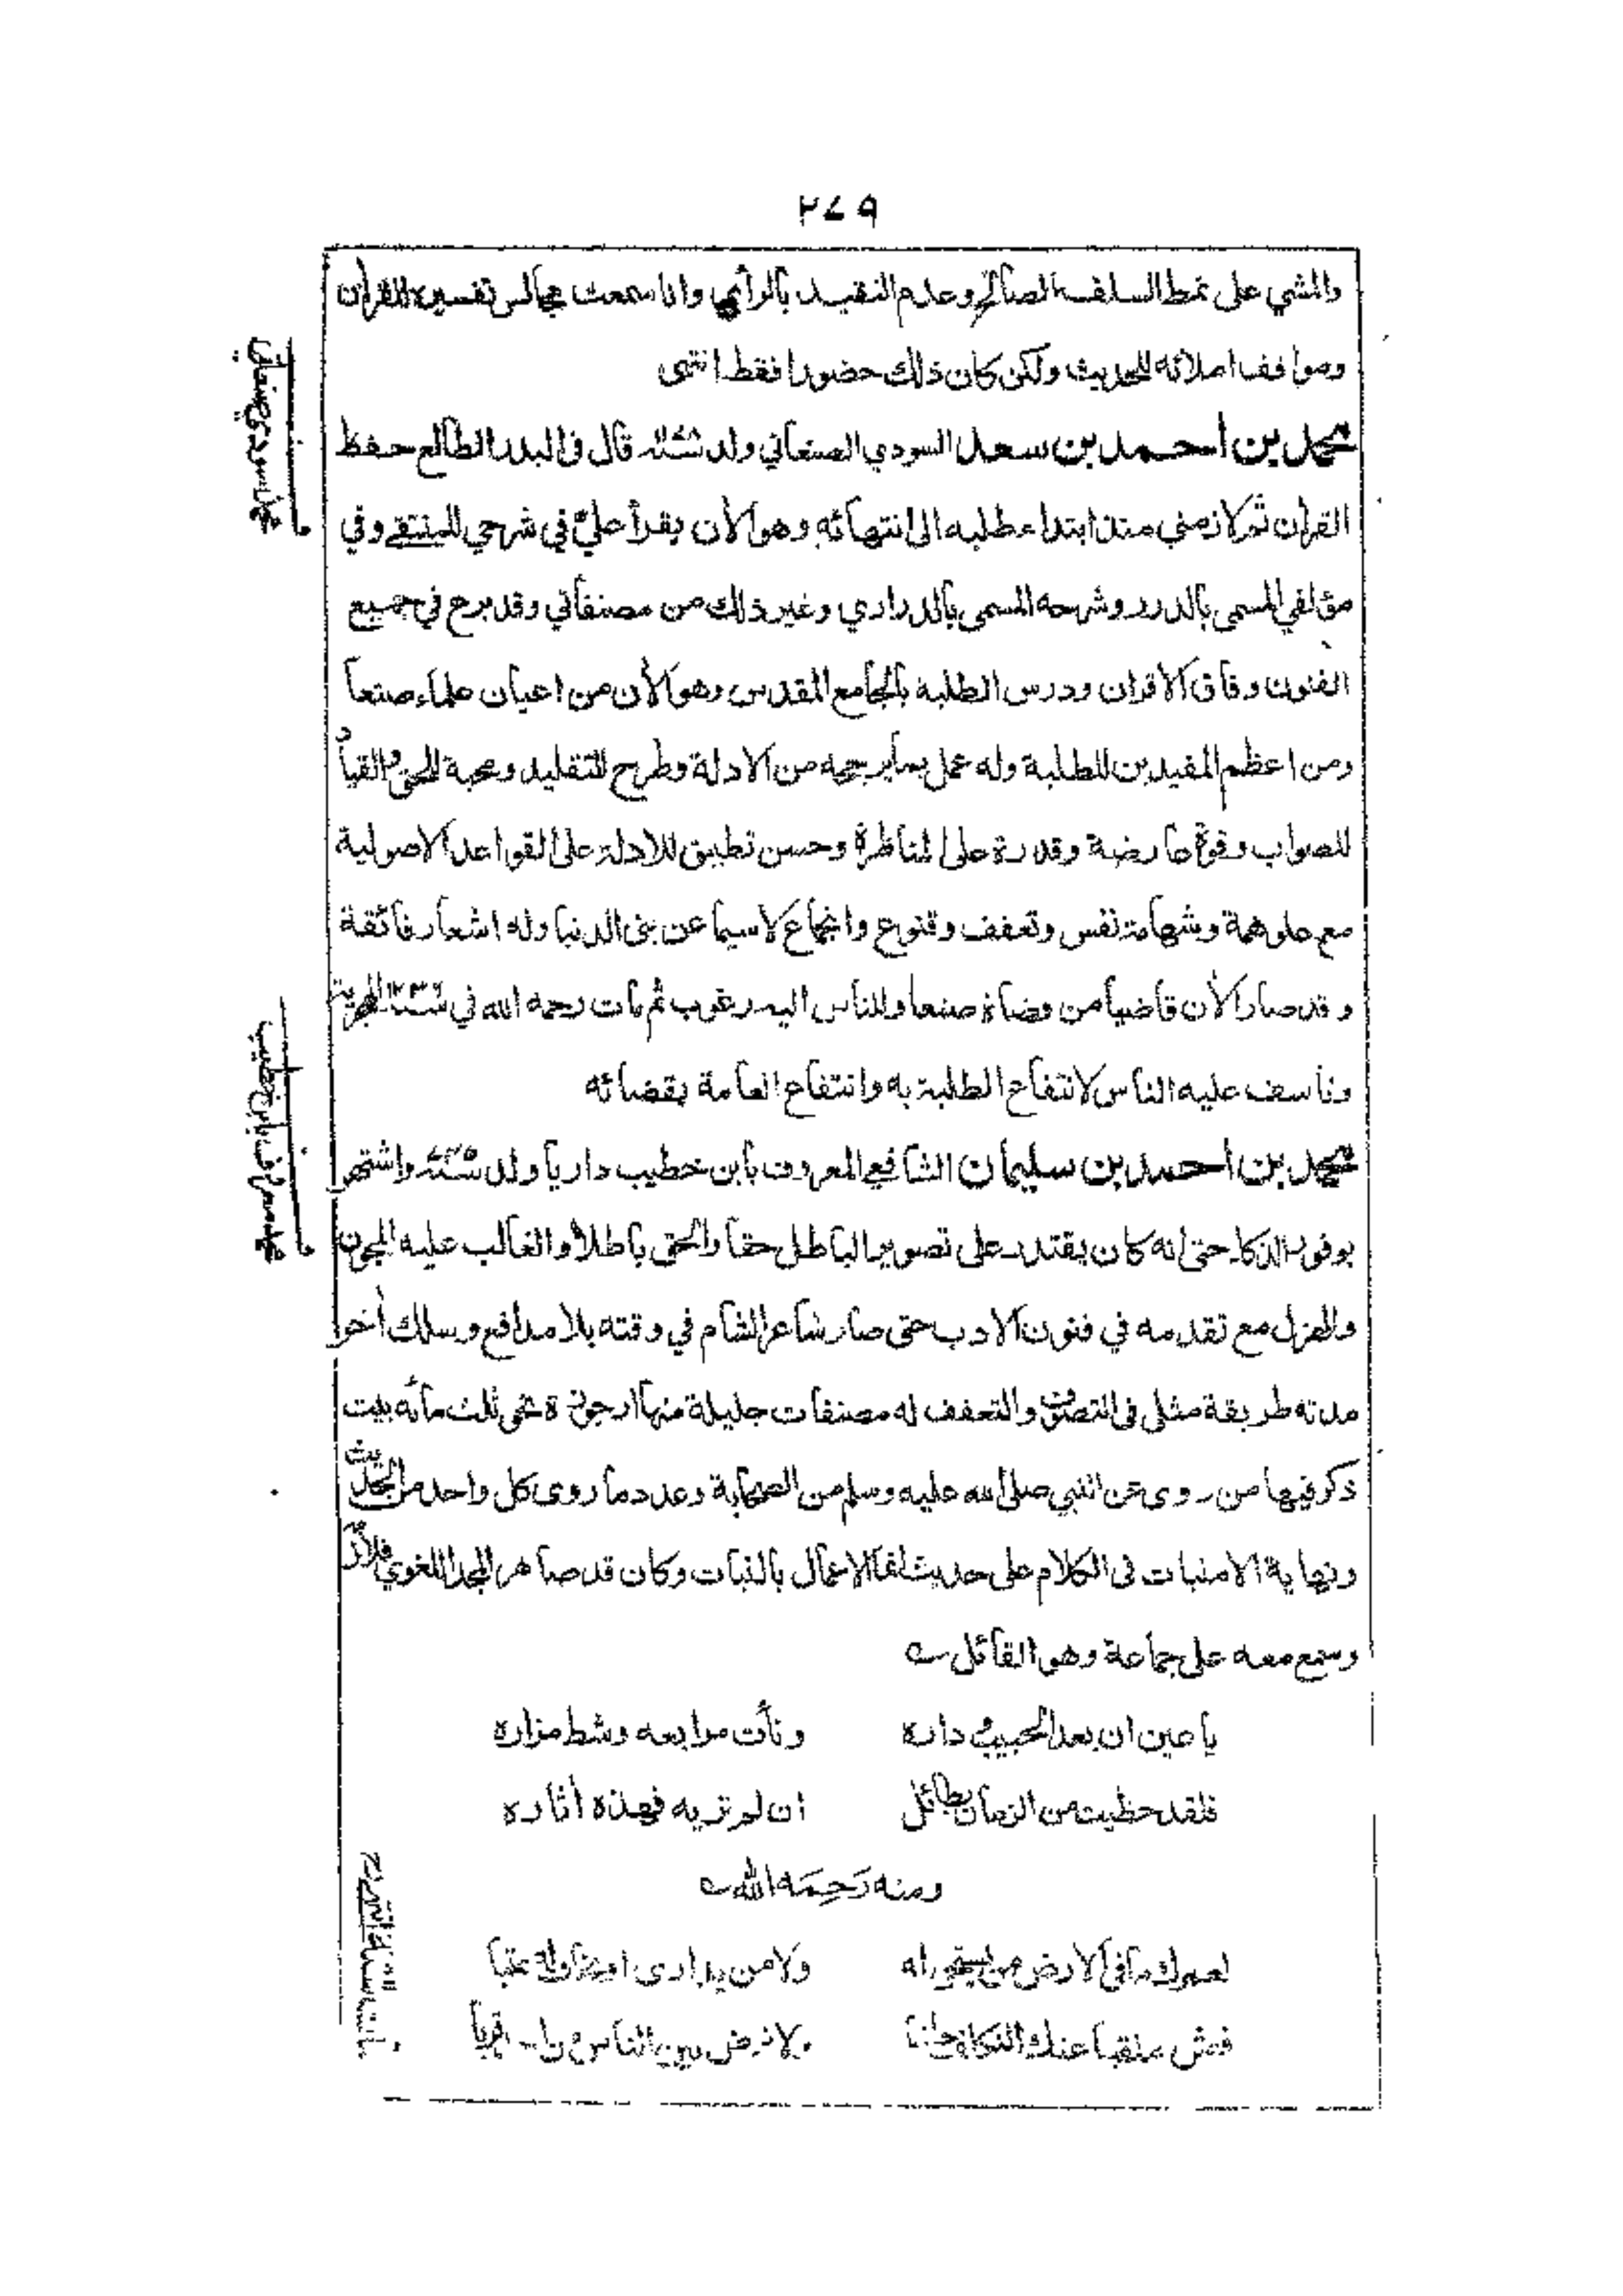 ٢٧٩
والمشي على نمط السلف الصالح وعدم التقيد بالرأي وانا سمعت مجالس تفسيره للقرأن
ومواقف املائه للحديث ولكن كان ذلك حضورا فقط انتهى
محمد بن أحمد بن سعد السودي الصنعاني ولد قال فى البدر الطالع حفظ
القران ثم لازمني منذ ابتداء طلبه الى انتهائه وهو الأن يقرأ عليّ في شرحي للمنتقے وفي
مؤلفي المسمى بالدرر وشرحه المسمى بالدراري وغير ذلك من مصنفاتي وقد برع في جميع
الفنون وفاق الاقران ودرس الطلبة بالجامع المقدس وهو الأن من اعيان علماء صنعا
ومن اعظم المفيدين للطلبة وله عمل بما يرجحه من الادلة وطرح للتقليد ومحبة للحق وانقياد
للصواب وقوة عارضة وقدرة على المناظرة وحسن تطبيق للادلة على القواعد الاصولية
مع علو همة وشهامة نفس وتعفف وقنوع وانجماع لاسيما عن بنى الدنيا وله اشعار فائقة
وقد صار الأن قاضيا من قضاة صنعا وللناس اليه رغوب ثم مات رحمه الله في الهجرية
وتأسف عليه الناس لانتفاع الطلبة به وانتفاع العامة بقضائه
محمد بن احمد بن سليمان الشافعي المعروف بابن خطيب داريا ولد واشتهر
بوفور الذكا حتى انه كان يقتدر على تصوير الباطل حقا والحق باطلا والغالب عليه المجون
والهزل مع تقدمه في فنون الادب حتى صار شاعر الشام في وقته بلا مدافع وسلك أخر
مدته طريقة مثلى فى التصون والتعفف له مصنفات جليلة منها ارجوزة نحى ثلث مائه بيت
ذكر فيها من روى عن النبي صلى الله عليه وسلم من الصحابة وعدد ما روى كل واحد من الحديث
ونهاية الامنيات فى الكلام على حديث انما الاعمال بالنيات وكان قد صاهر المجد اللغوي فلازم
وسمع معه على جماعة وهو القائل
يا عين ان بعد الحبيب و داره
ونأت مرابعه وشط مزاره
فلقد حظيت من الزمان بطائل
ان لم تريه فهذه أثاره
ومنه رَحِمَه الله
لعمرك ما في الارض من تستحي له
ولا من يدارى او
فعش ملقيا عنك التكلف جانبا
ولا ترض بين الناس
محمد سودي صنعاني
محمد معروف بابن خطيب